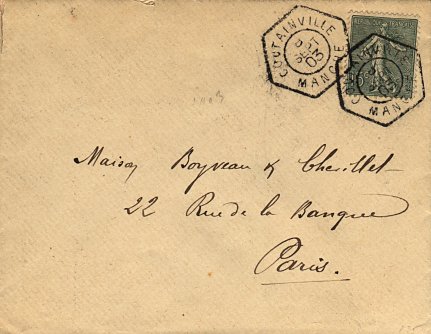 COUTAINVILLE
MANCHE
03
COUTAINVILLE
MANCHE
03
Maison Boyveau & Chevillet
22 Rue de la Banque
Paris.